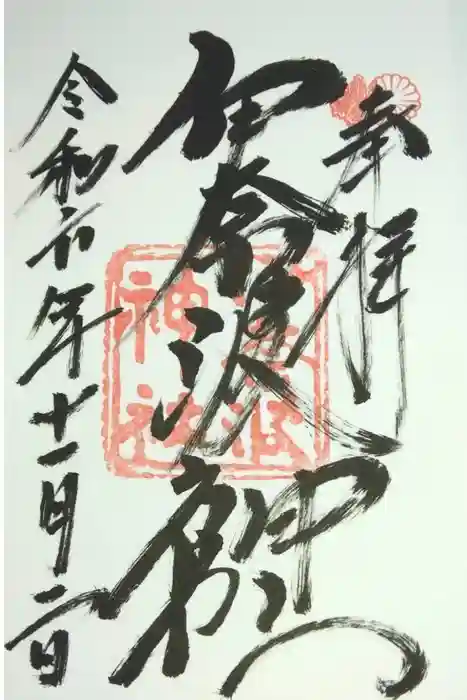 奉拝
伊奈波神社
令和六年十一月二日
伊奈波
神社